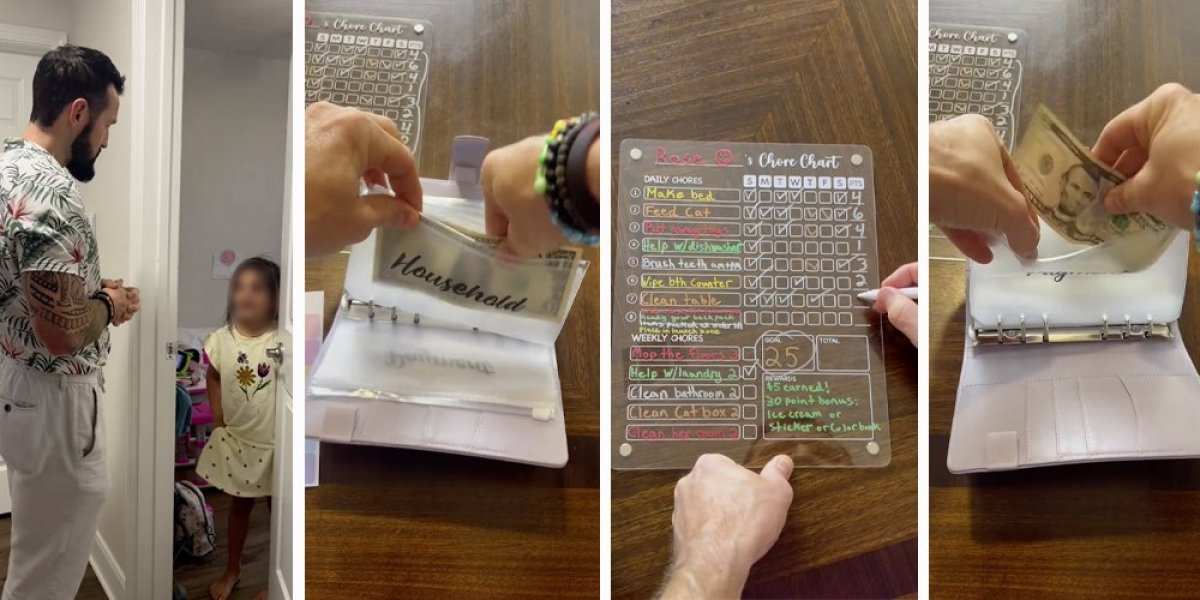 's Chore Chart
S M T W T F S PTS
4
6
4
1
3
2
Household
Payment
Rose 's Chore Chart
DAILY CHORES S M T W T F S PTS
1 Make bed 4
2 Feed Cat 6
3 Put away toys 4
4 Help w/dishwasher 1
5 Brush teeth am+pm 3
6 Wipe bth counter 2
7 Clean table
8 Ready your backpack
WEEKLY CHORES
Mop the floors 2
Help w/laundry 2
Clean bathroom 2
Clean Cat box 2
Clean her room 2
GOAL TOTAL
25
REWARDS
$5 earned!
30 point bonus:
Ice cream or
Sticker or Color book
Chore Chart
S M T W T F S PTS
4
6
4
1
3
2